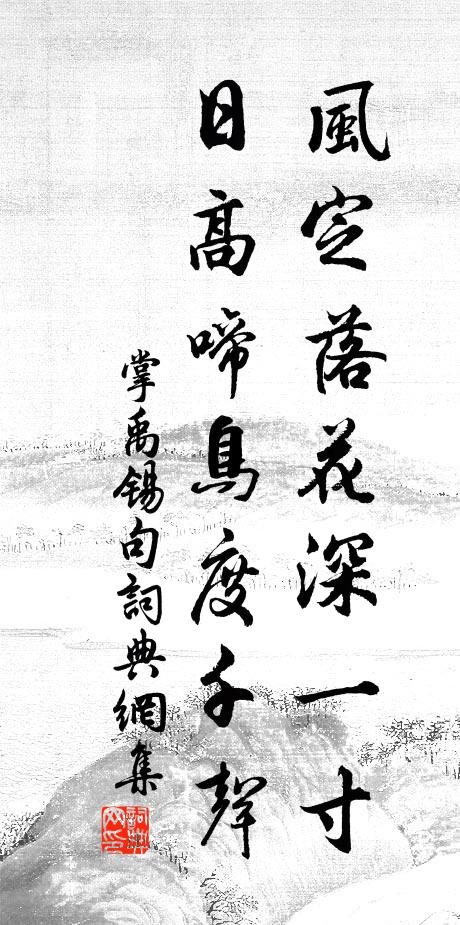 風定落花深一寸
日高啼鳥度千聲
掌禹錫句詞典網集